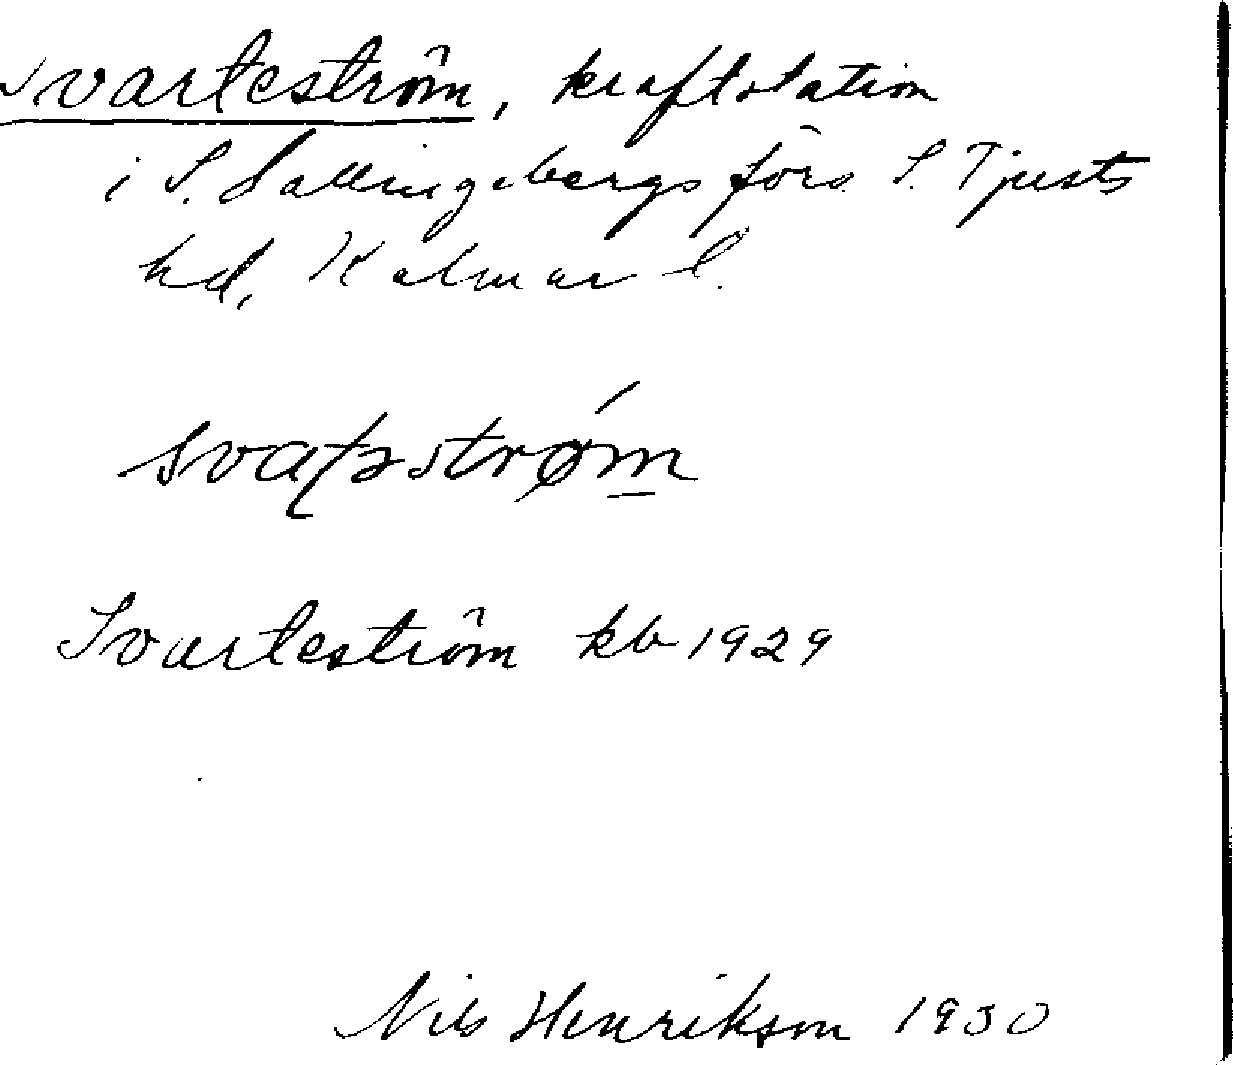 Svarteström, kraftstation
i S. Sallingebergs förs. S. Tjusts
hd, Kalmar l.
Svarteström kb 1929
Nils Henrikson 1930